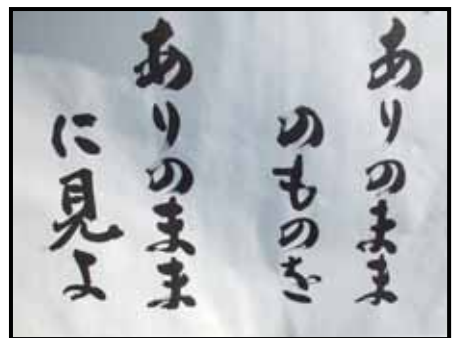 ありのまま
のものを
ありのまま
に見よ